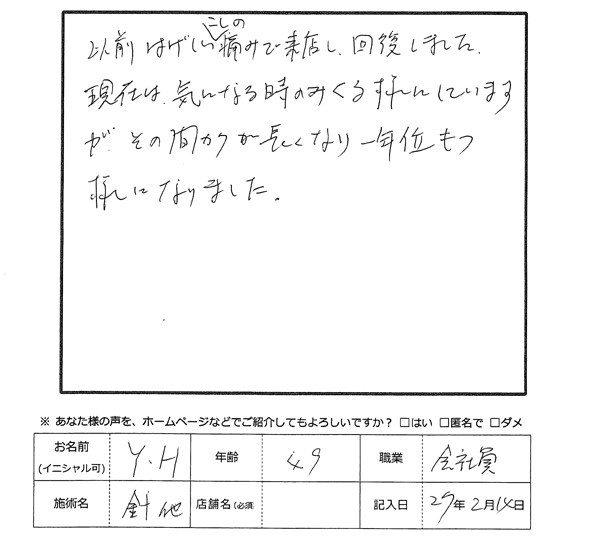 以前はげしいこしの痛みで来店し、回復しました。
現在は、気になる時のみくる様にしています
が、その間かくが長くなり一年位もつ
様になりました。
※ あなた様の声を、ホームページなどでご紹介してもよろしいですか? □はい □匿名で □ダメ
お名前 (イニシャル可) Y.H 年齢 49 職業 会社員
施術名 針 他 店舗名 (必須 記入日 29年 2月14日